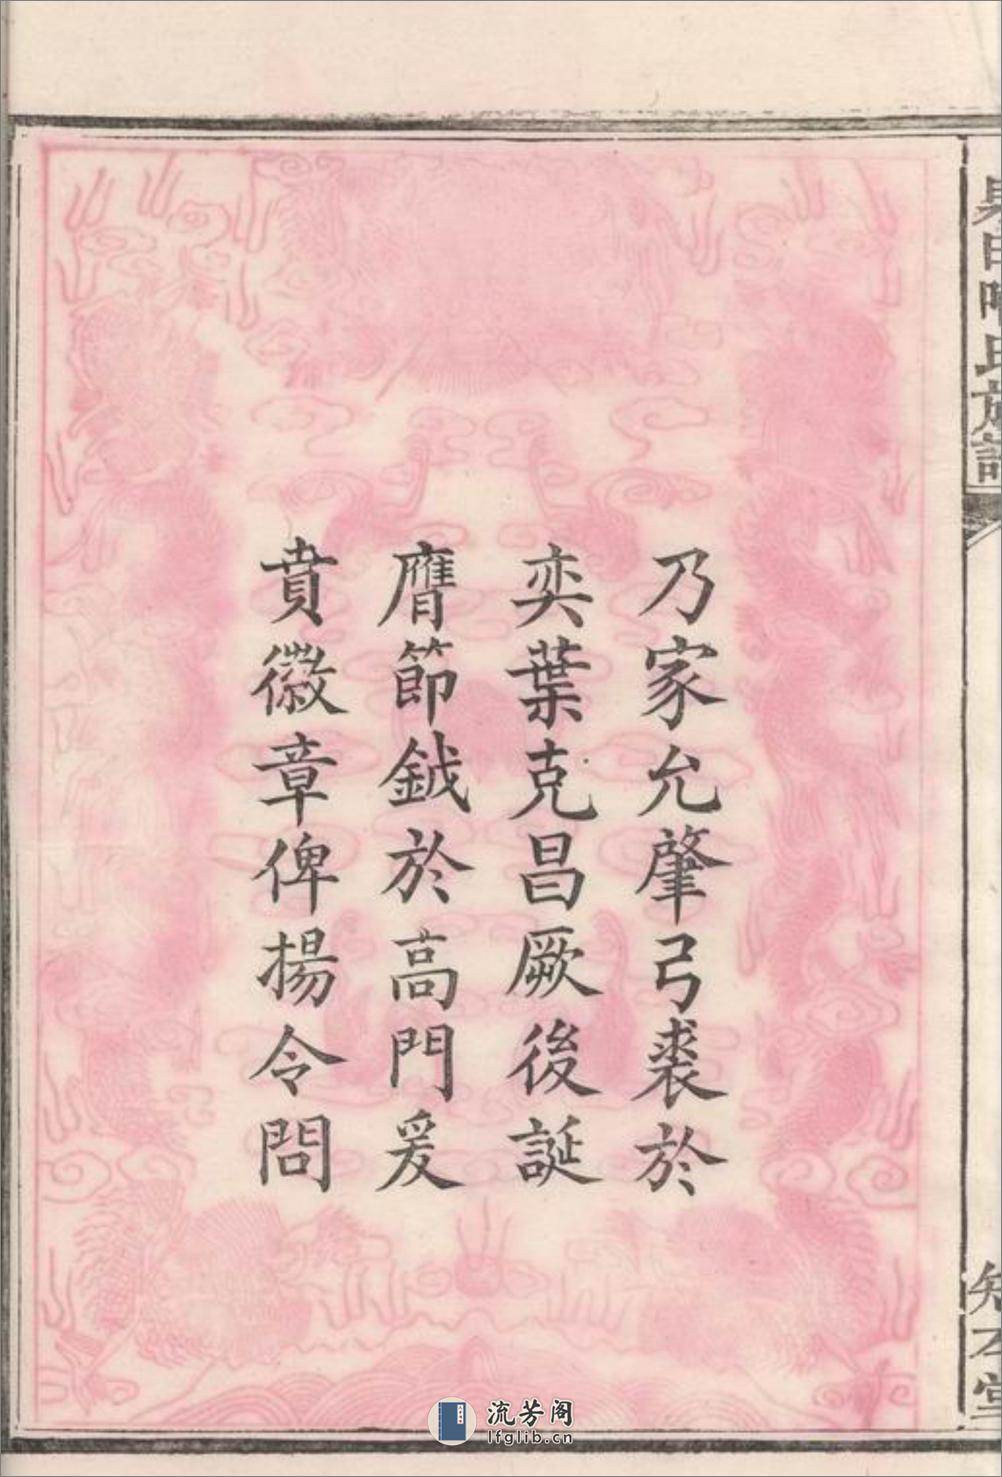 乃家允肇弓裘於
奕葉克昌厥後誕
膺節鉞於高門爰
賁徽章俾揚令問
氏族譜
知本堂
流芳阁
lfglib.cn